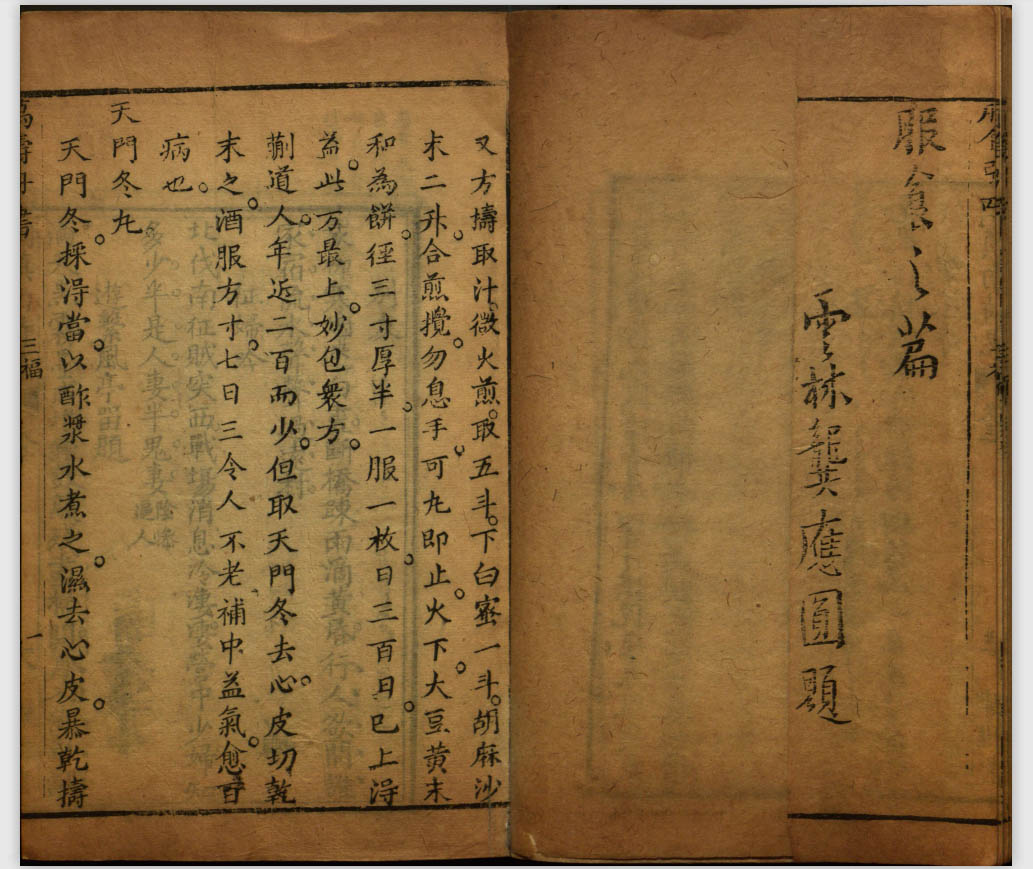 服食之篇
雲林龔應圓題
又方擣取汁。微火煎。取五斗。下白蜜一斗。胡麻沙
末二升。合煎攪。勿息手。可丸即止。火下。大豆黃末
和為餅。徑三寸厚半。一服一枚。日三百日。已上淂
益。此万最上。妙包衆方。
蒯道人。年近二百而少。但取天門冬去心。皮切乾
末之。酒服方寸。七日三令人不老補中益氣。愈百
病也。
天門冬丸
天門冬。採淂當。以酢漿水煮之。濕去心皮。暴乾擣
三福
一